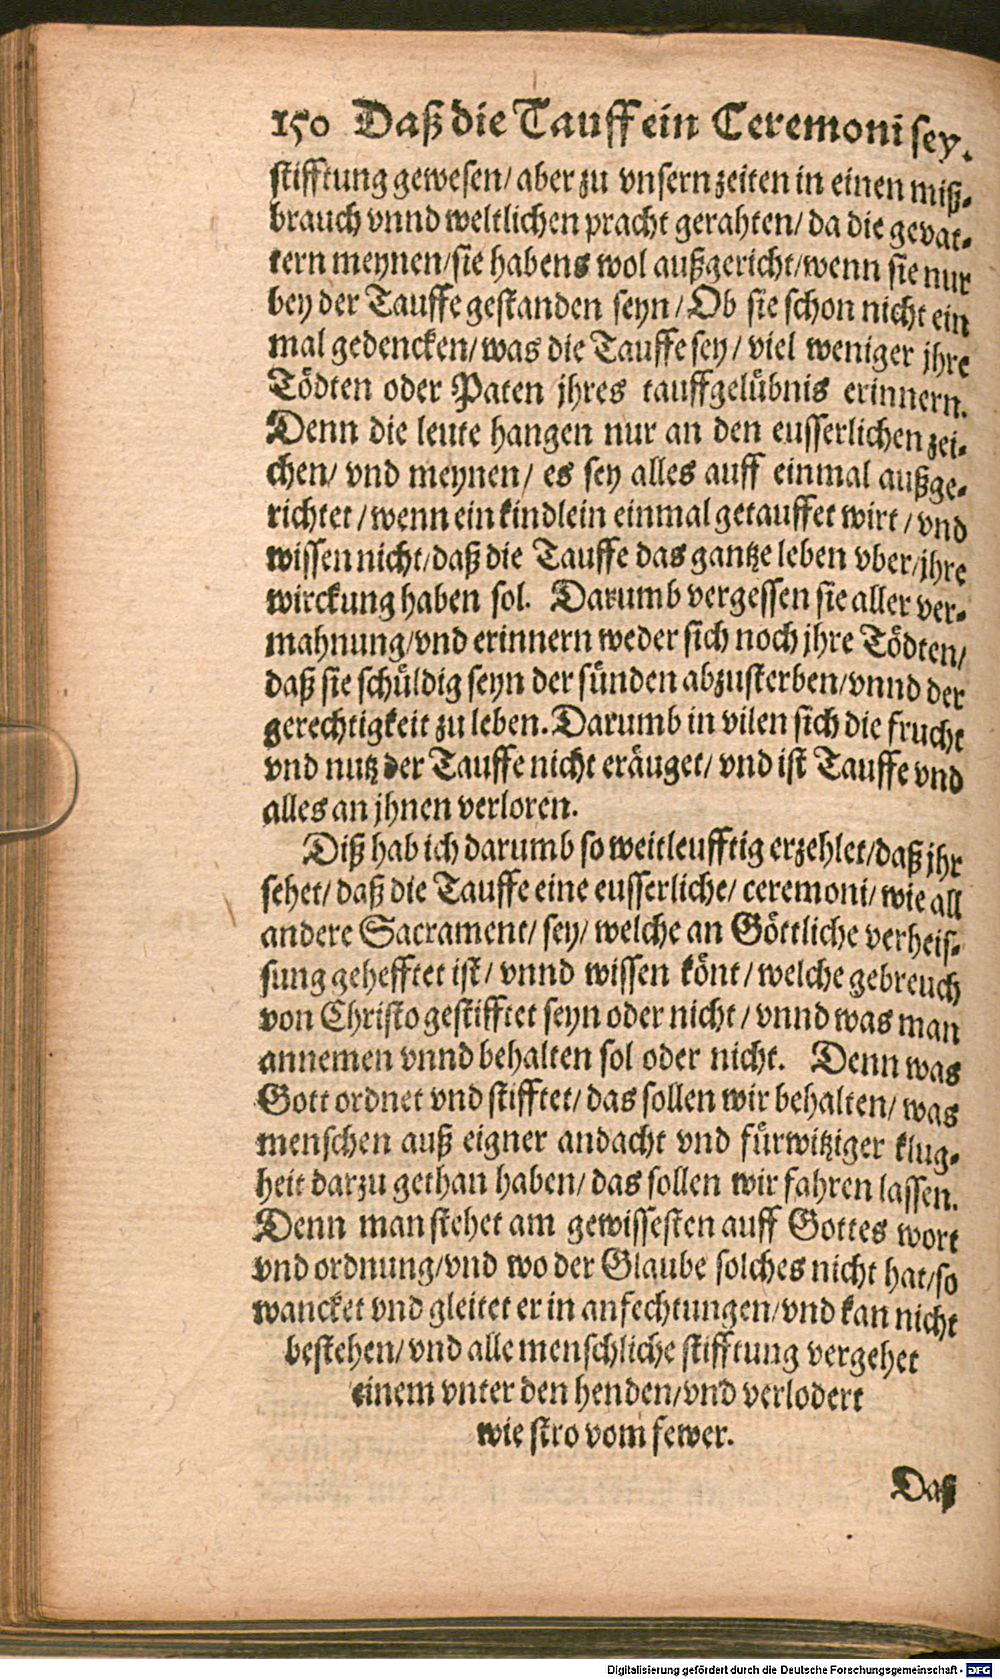 150 Daß die Tauff ein Ceremoni sey.
stifftung gewesen/ aber zu vnsern zeiten in einen miß-
brauch vnnd weltlichen pracht gerahten/ da die gevat-
tern meynen/ sie habens wol außgericht/ wenn sie nur
bey der Tauffe gestanden seyn/ Ob sie schon nicht ein
mal gedencken/ was die Tauffe sey/ viel weniger jhre
Tödten oder Paten jhres tauffgelübnis erinnern.
Denn die leute hangen nur an den eusserlichen zei-
chen/ vnd meynen/ es sey alles auff einmal außge-
richtet/ wenn ein kindlein einmal getauffet wirt/ vnd
wissen nicht/ daß die Tauffe das gantze leben vber/ jhre
wirckung haben sol. Darumb vergessen sie aller ver-
mahnung/ vnd erinnern weder sich noch jhre Tödten/
daß sie schüldig seyn der sünden abzusterben/ vnnd der
gerechtigkeit zu leben. Darumb in vilen sich die frucht
vnd nutz der Tauffe nicht eräuget/ vnd ist Tauffe vnd
alles an jhnen verloren.
Diß hab ich darumb so weitleufftig erzehlet/ daß jhr
sehet/ daß die Tauffe eine eusserliche/ ceremoni/ wie all
andere Sacrament/ sey/ welche an Göttliche verheis-
sung gehefftet ist/ vnnd wissen könt/ welche gebreuch
von Christo gestifftet seyn oder nicht/ vnnd was man
annemen vnnd behalten sol oder nicht. Denn was
Gott ordnet vnd stifftet/ das sollen wir behalten/ was
menschen auß eigner andacht vnd fürwitziger klug-
heit darzu gethan haben/ das sollen wir fahren lassen.
Denn man stehet am gewissesten auff Gottes wort
vnd ordnung/ vnd wo der Glaube solches nicht hat/ so
wancket vnd gleitet er in anfechtungen/ vnd kan nicht
bestehen/ vnd alle menschliche stifftung vergehet
einem vnter den henden/ vnd verlodert
wie stro vom fewer.
Daß
Digitalisierung gefördert durch die Deutsche Forschungsgemeinschaft - DFG